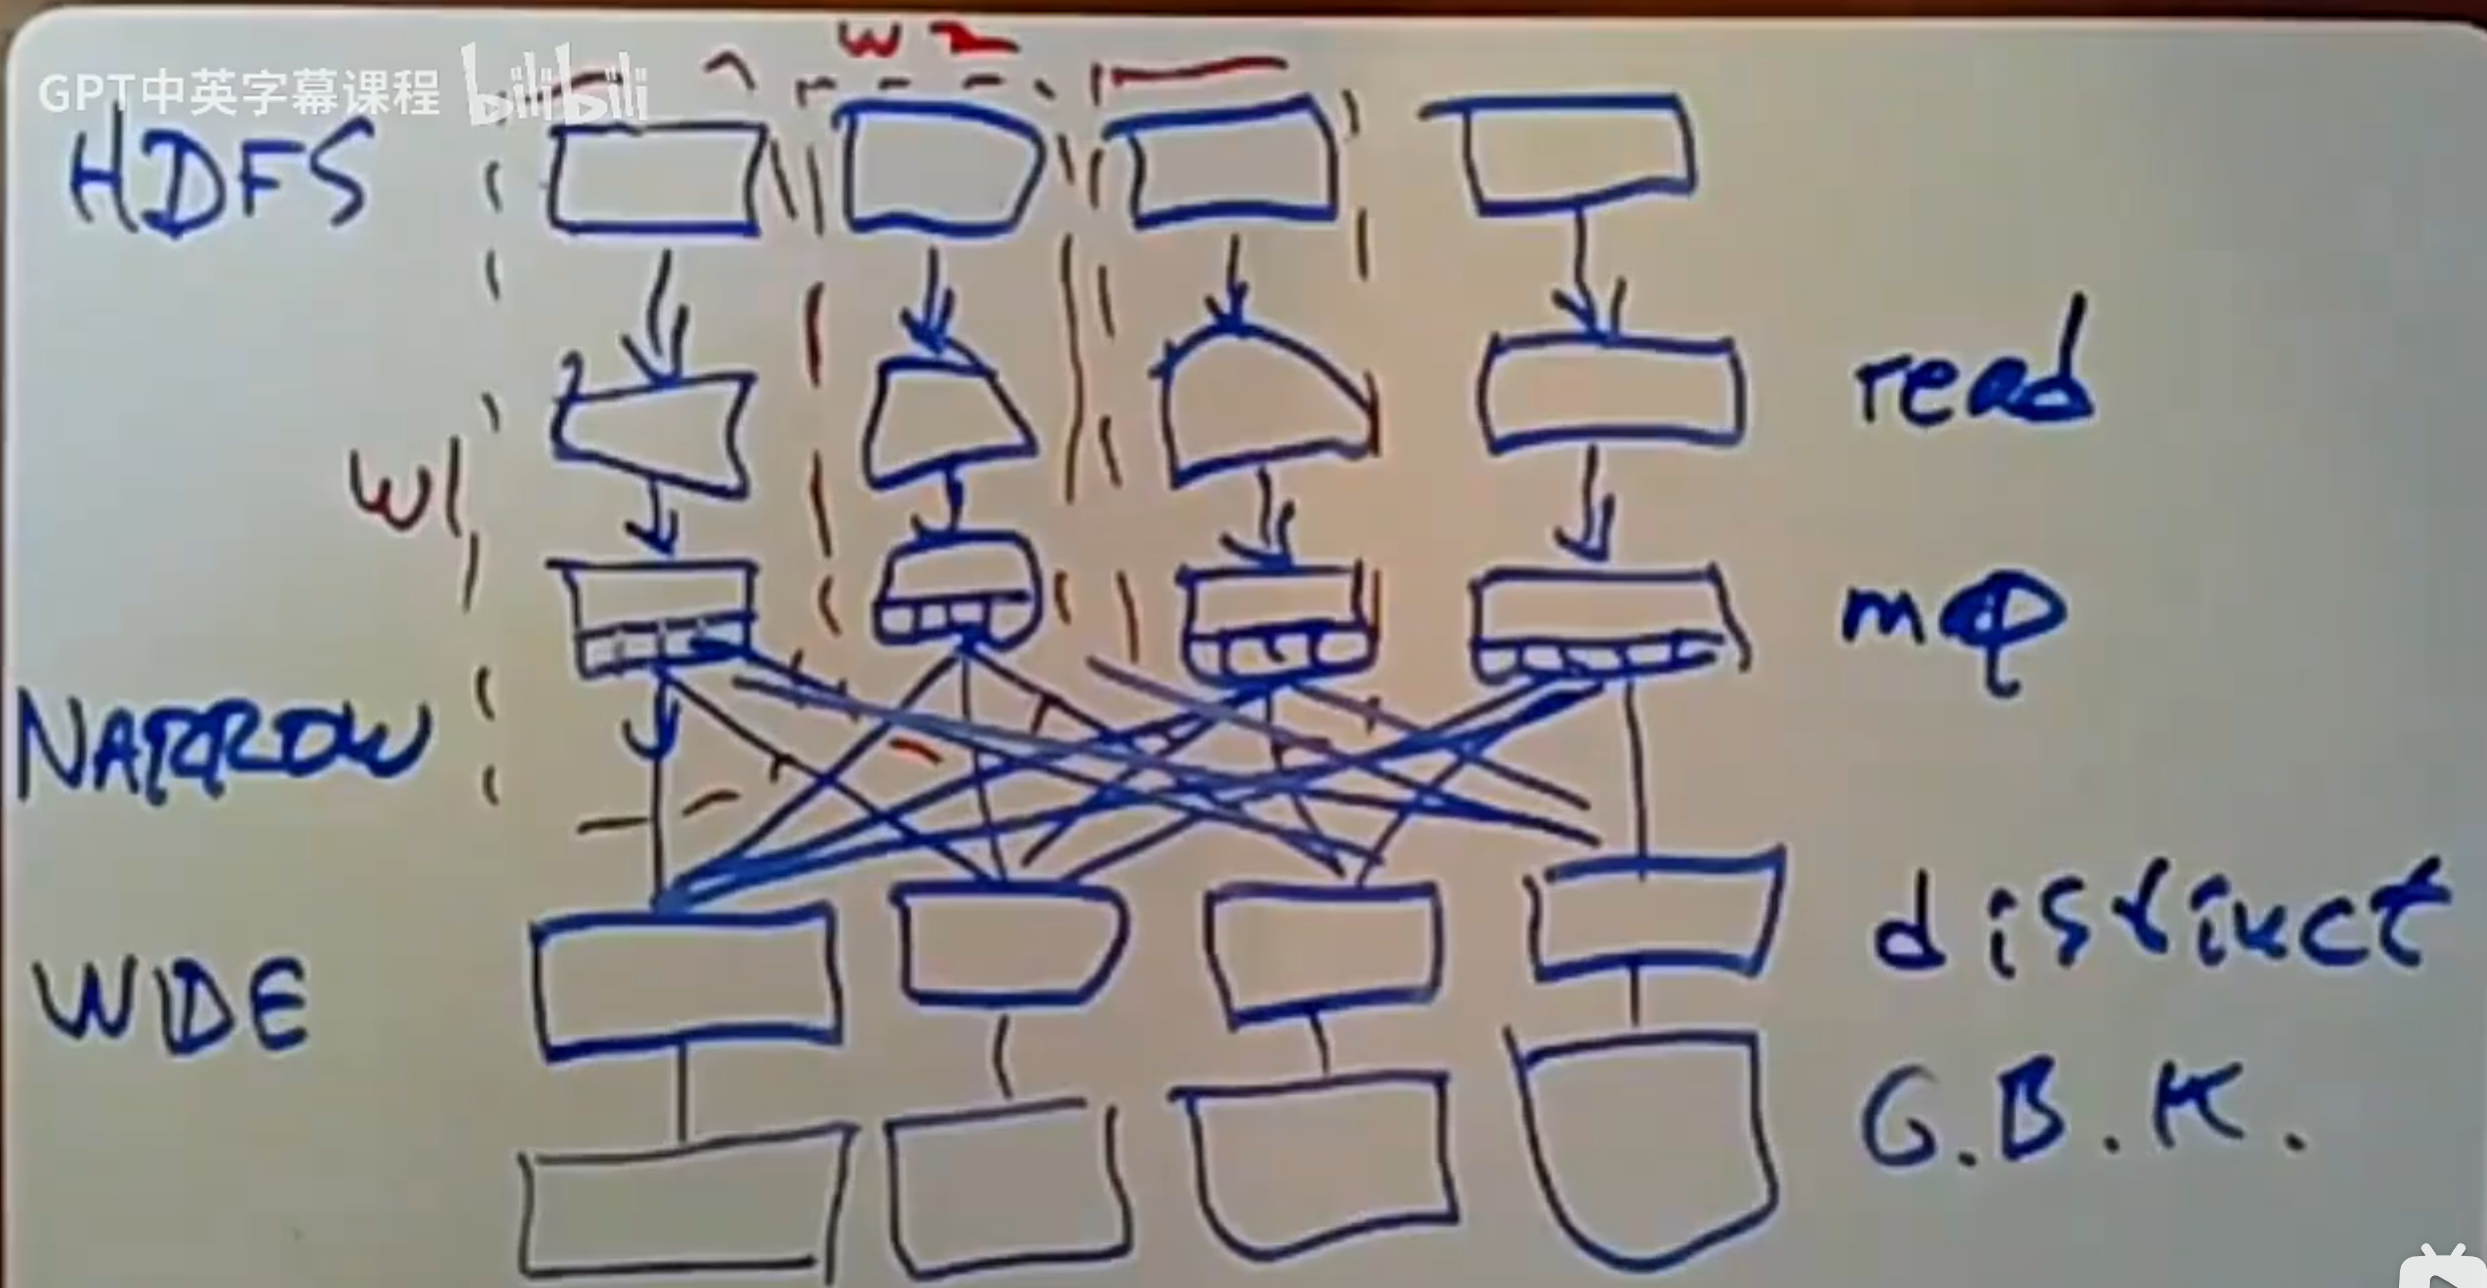 GPT中英字幕课程 bilibili
W2
HDFS
read
W1
map
NARROW
distinct
WIDE
G.B.K.